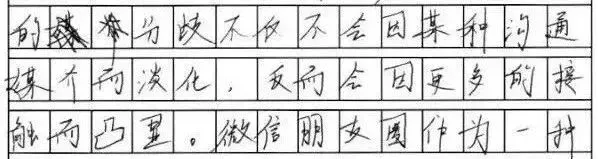 的分歧不仅不会因某种沟通
媒介而淡化，反而会因更多的接
触而凸显。微信朋友圈作为一种